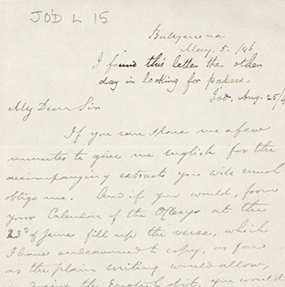 JO'D L 15
Ballymena
May. 5. /46
I found this letter the other
day in looking for papers.
J.O'D. Aug. 25/
My Dear Sir
If you can spare me a few
minutes to give me english for the
accompanying extracts you will much
oblige me. And if you would, from
your Calendar of the at the
23d of June fill up the verse, which
I have endeavoured to copy, as far
as the plain writing would allow,
the English of it, you would